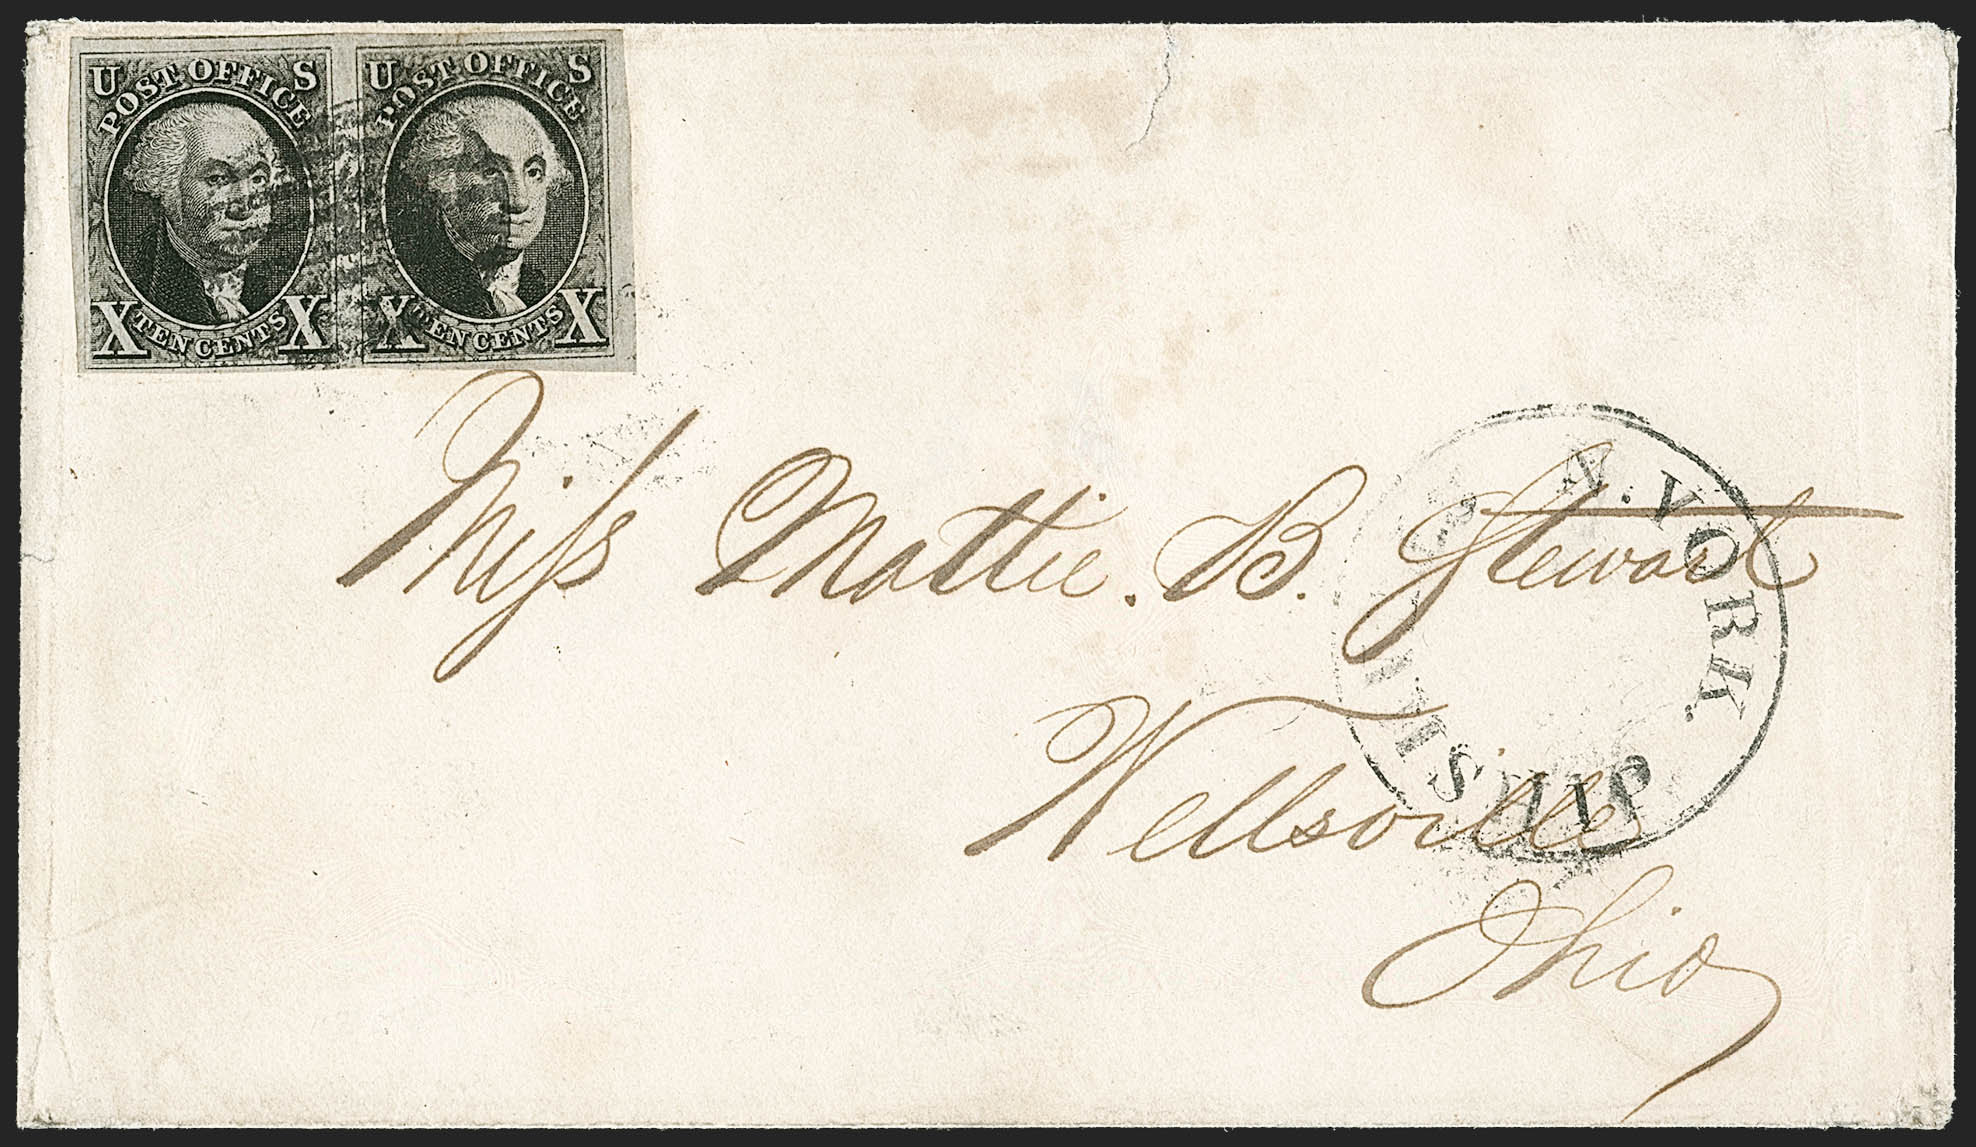 U S U S
POST OFFICE POST OFFICE
X TEN CENTS X X TEN CENTS X
N. YORK.
SHIP
Miss Mattie. B. Stewart
Wellsville
Ohio